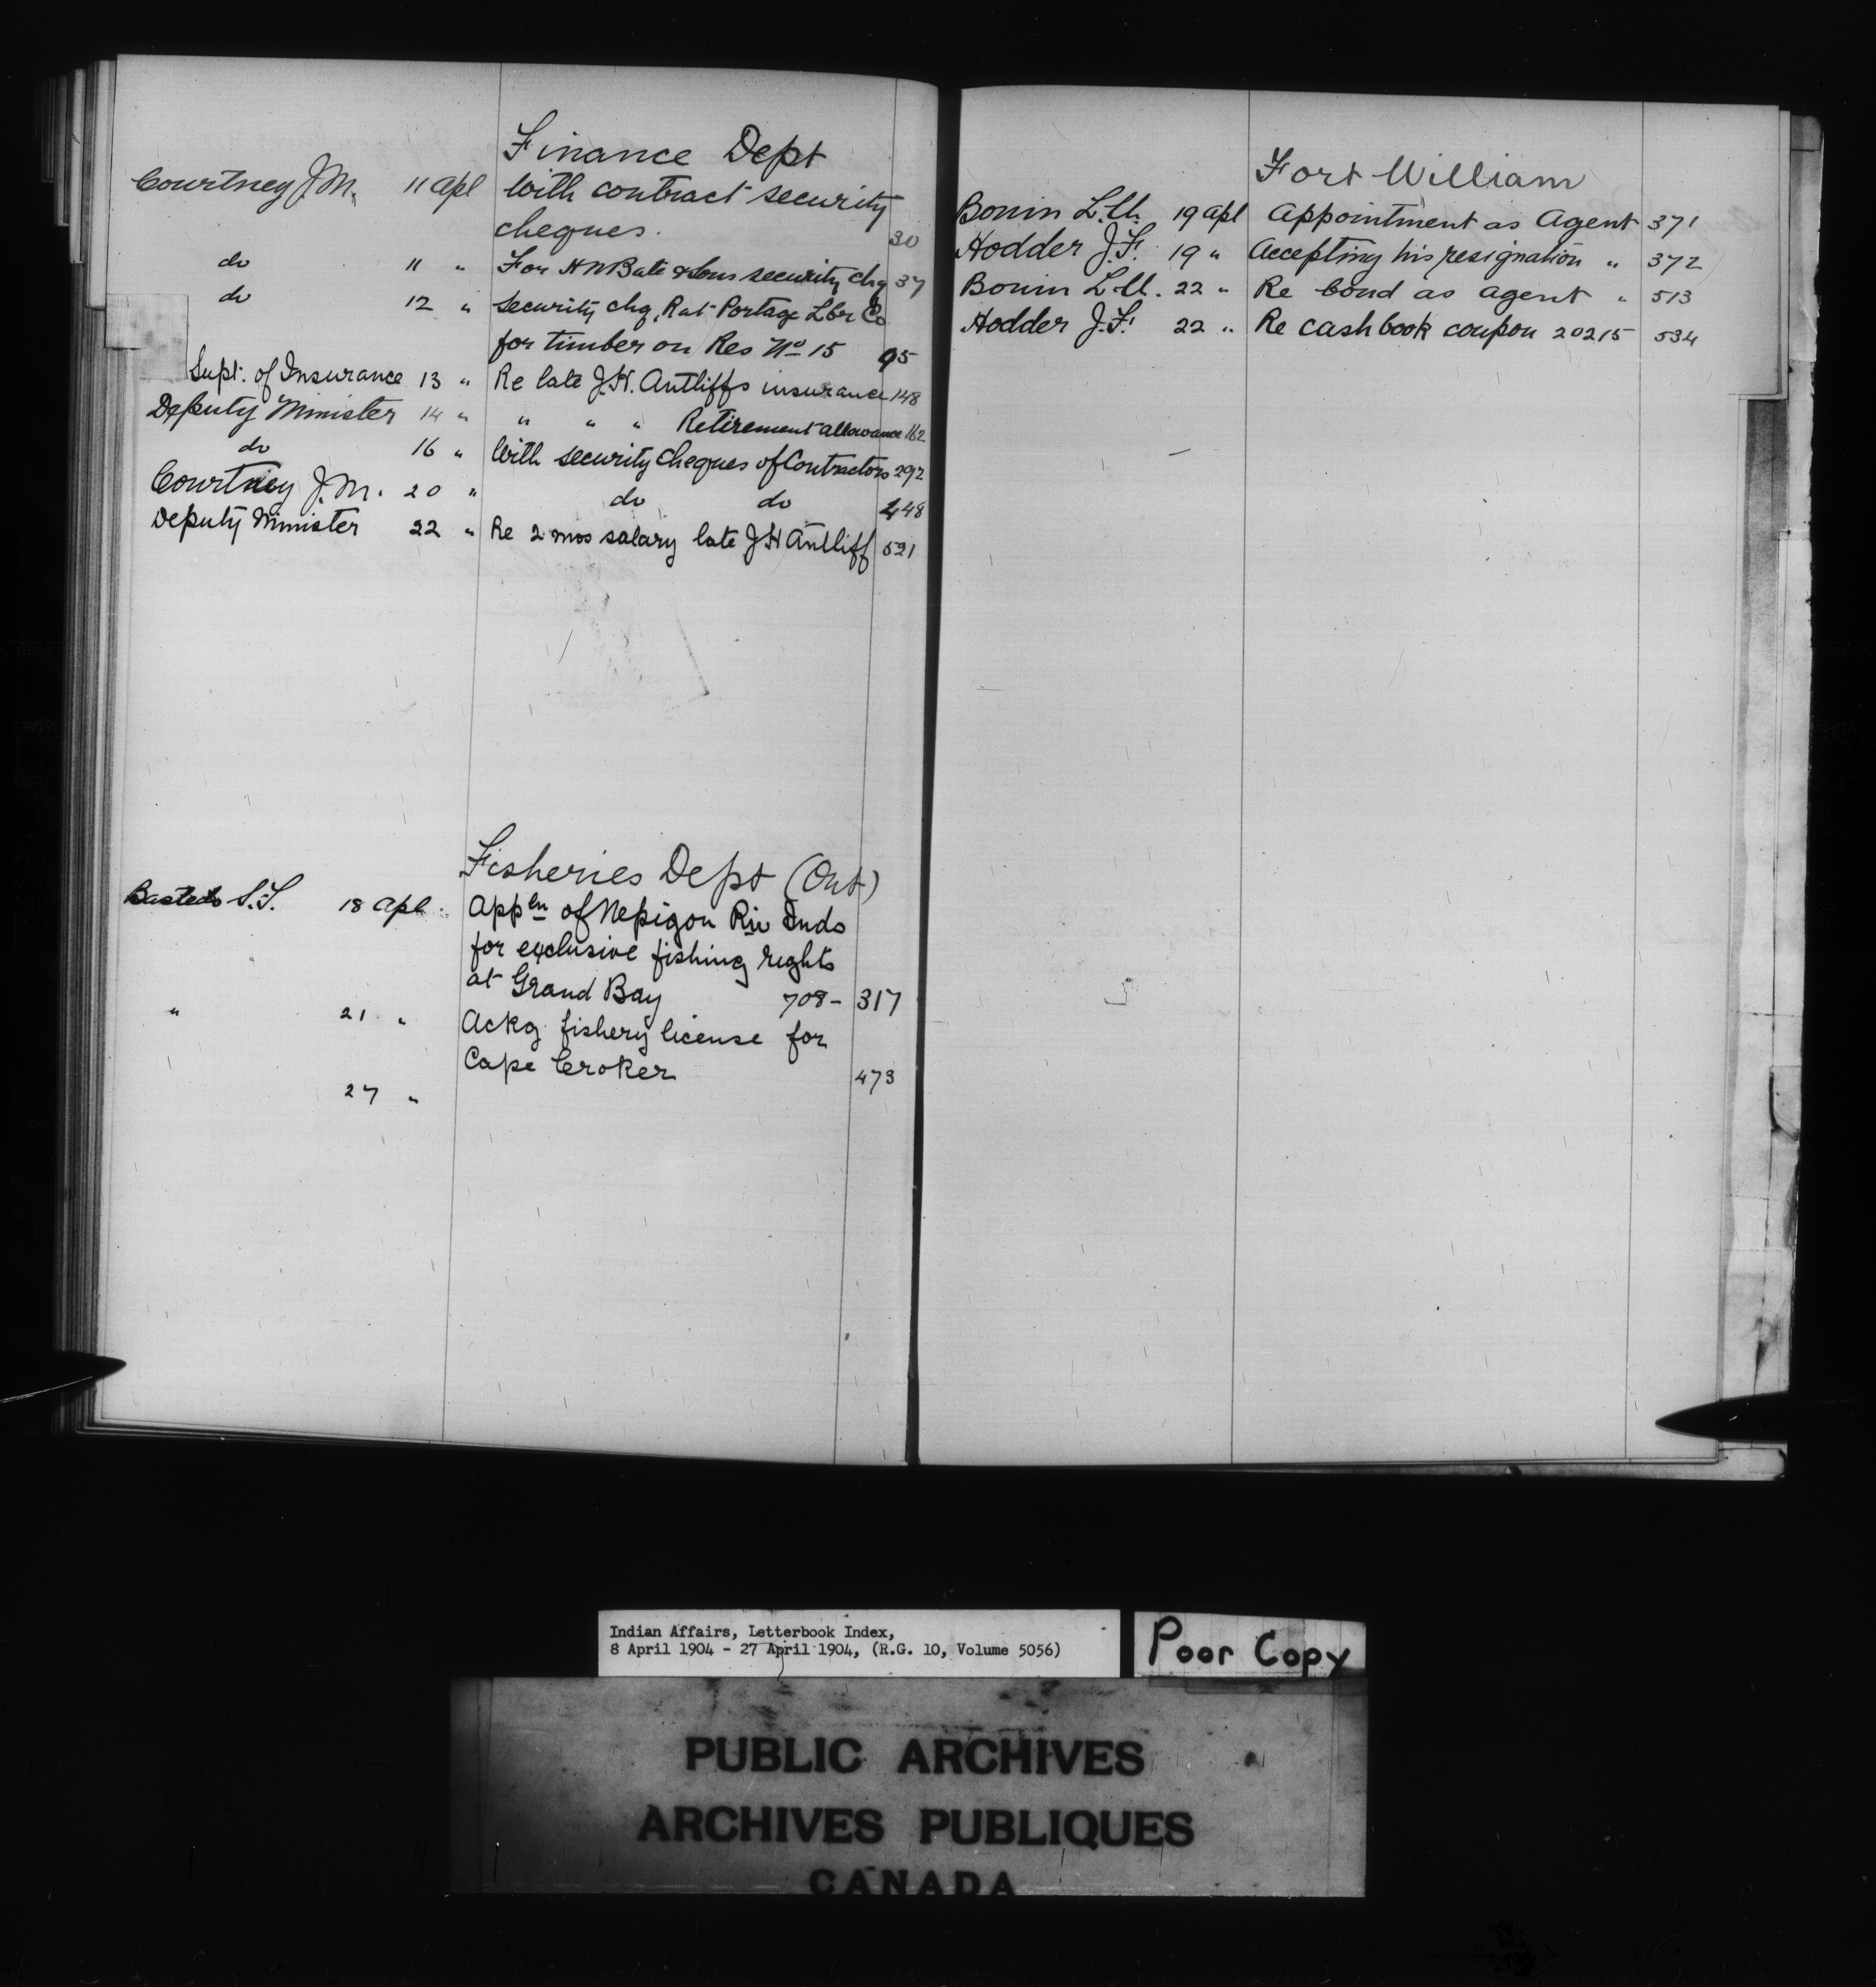 Finance Dept
Courtney J.M. 11 Apl With contract security
cheques. 30
do 11 " For H N Bate & Sons security chq 37
do 12 " Security chq, Rat Portage Lbr Co
for timber on Res No 15 95
Supt. of Insurance 13 " Re late J.H. Antliffs insurance 148
Deputy Minister 14 " " " " Retirement allowance 162
do 16 " With security cheques of Contractors 292
Courtney J.M. 20 " do do 448
Deputy Minister 22 " Re 2 mos salary late J H Antliff 521
Fisheries Dept (Ont)
Bastedo S.T. 18 Apl. Appln of Nepigon Riv Inds
for exclusive fishing rights
at Grand Bay 708- 317
" 21 " Ackg fishery license for
Cape Croker 473
27 "
Fort William
Bonin 19 Apl Appointment as Agent 371
Hodder J.F. 19 " Accepting his resignation " 372
Bonin 22 " Re bond as agent " 513
Hodder J.F. 22 " Re cash book coupon 20215 534
Indian Affairs, Letterbook Index,
8 April 1904 - 27 April 1904, (R.G. 10, Volume 5056)
Poor Copy
PUBLIC ARCHIVES
ARCHIVES PUBLIQUES
CANADA